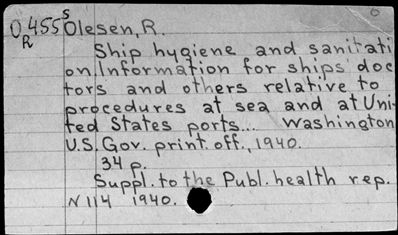 O 455 s Olesen, R.
R
Ship hygiene and sanitati
on. Information for ships' doc
tors and others relative to
procedures at sea and at Uni-
ted States ports... Washington
U.S. Gov. print. off., 1940.
34 p.
Suppl. to the Publ. health rep.
N 114 1940.